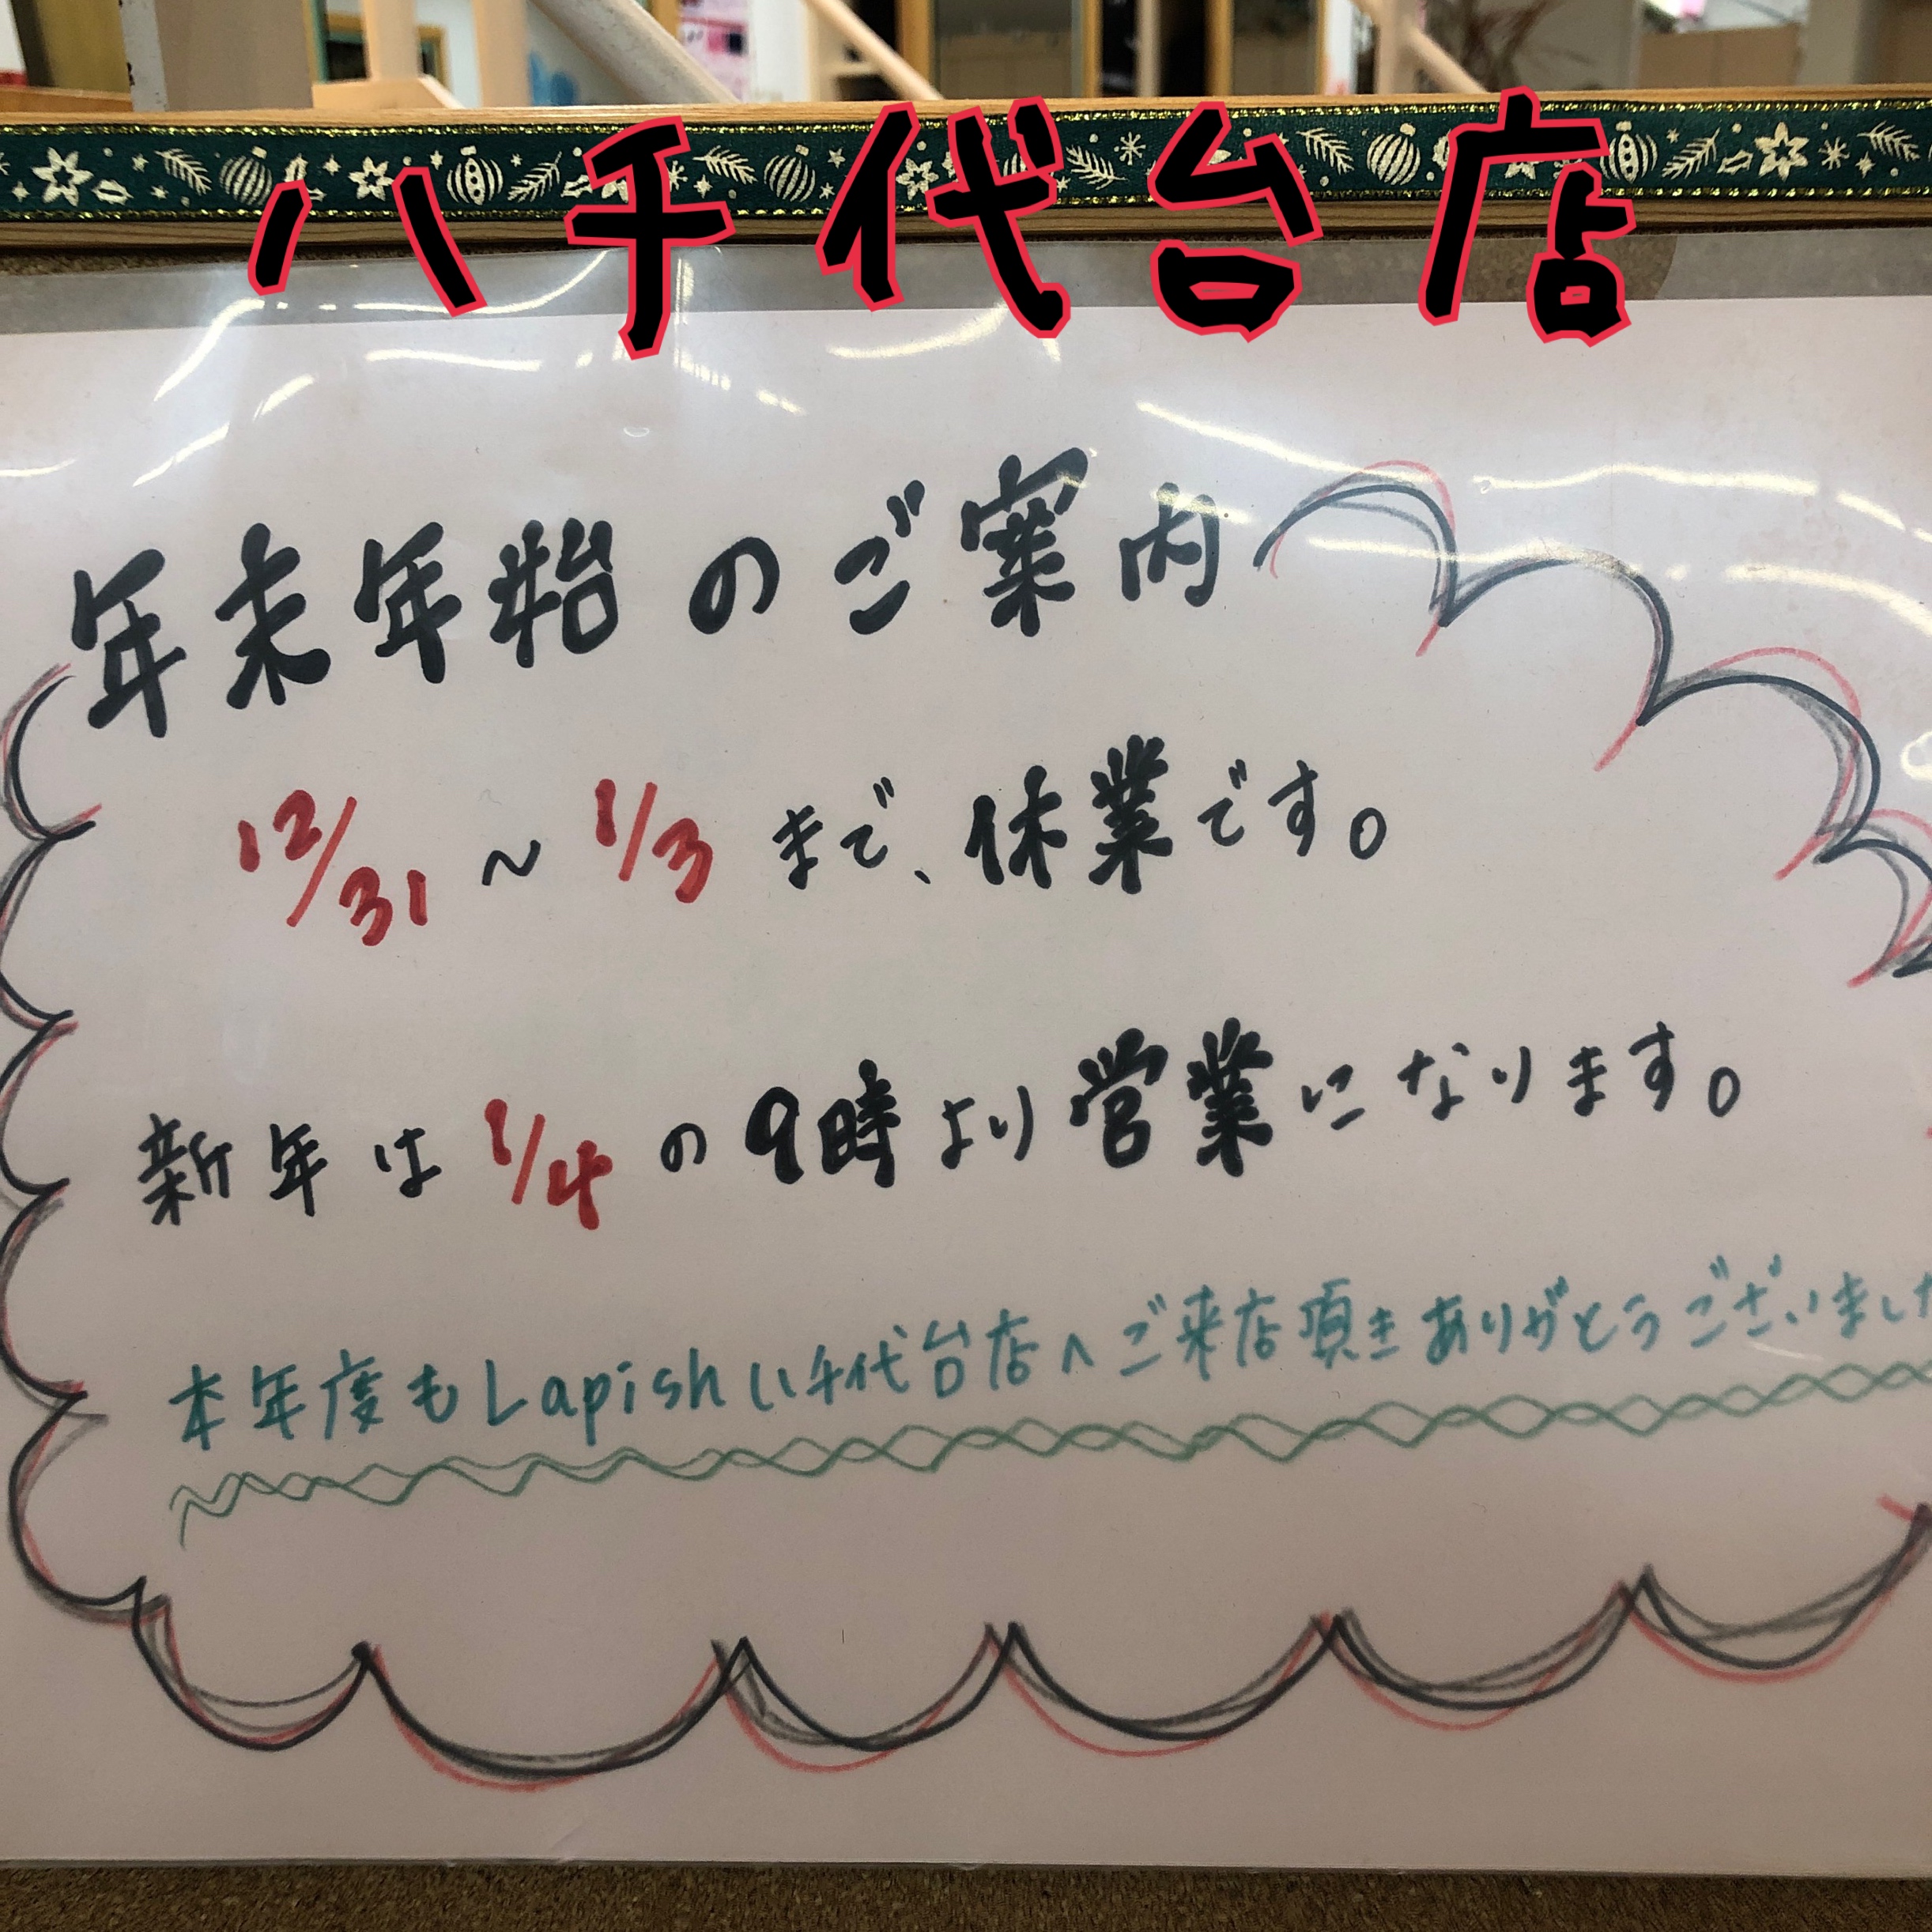 八千代台店
年末年始のご案内
12/31～1/3まで、休業です。
新年は1/4の9時より営業になります。
本年度もLapish八千代台店へご来店頂きありがとうございました